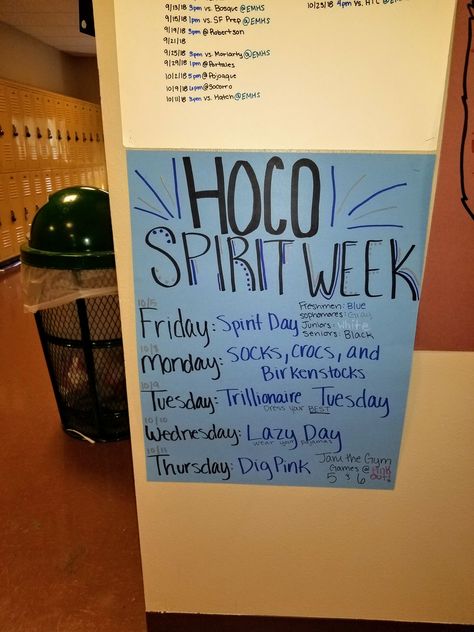 9/13/18 3pm vs. Bosque @EMHS
9/15/18 1pm vs. SF Prep @EMHS
9/19/18 3pm @Robertson
9/21/18
9/25/18 3pm vs. Moriarty @EMHS
9/29/18 1pm @Portales
10/2/18 5pm @Pojoaque
10/9/18 6pm @Socorro
10/11/18 3pm vs. Hatch @EMHS
10/23/18 4pm vs. HTC @EMHS
HOCO
SPIRIT WEEK
10/5
Friday: Spirit Day
Freshmen: Blue
sophomores: Gray
Juniors: White
Seniors: Black
10/8
Monday: socks, crocs, and
Birkenstocks
10/9
Tuesday: Trillionaire Tuesday
Dress your BEST
10/10
Wednesday: Lazy Day
wear your pajamas
10/11
Thursday: Dig Pink
Jam the Gym
Games @
5 & 6
Pink
Out!